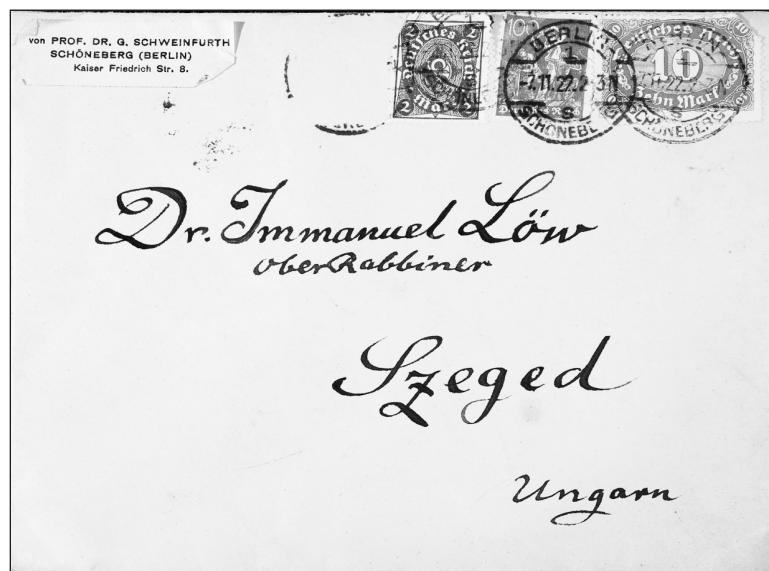 von PROF. DR. G. SCHWEINFURTH
SCHÖNEBERG (BERLIN)
Kaiser Friedrich Str. 8.
2 2
Deutsches Reich
2 Mark 2
100
BERLIN
1
-7.11.22.2-3N
S
SCHÖNEBERG
Deutsches Reich
10
Zehn Mark
SCHÖNEBERG
Dr. Immanuel Löw
OberRabbiner
Szeged
Ungarn